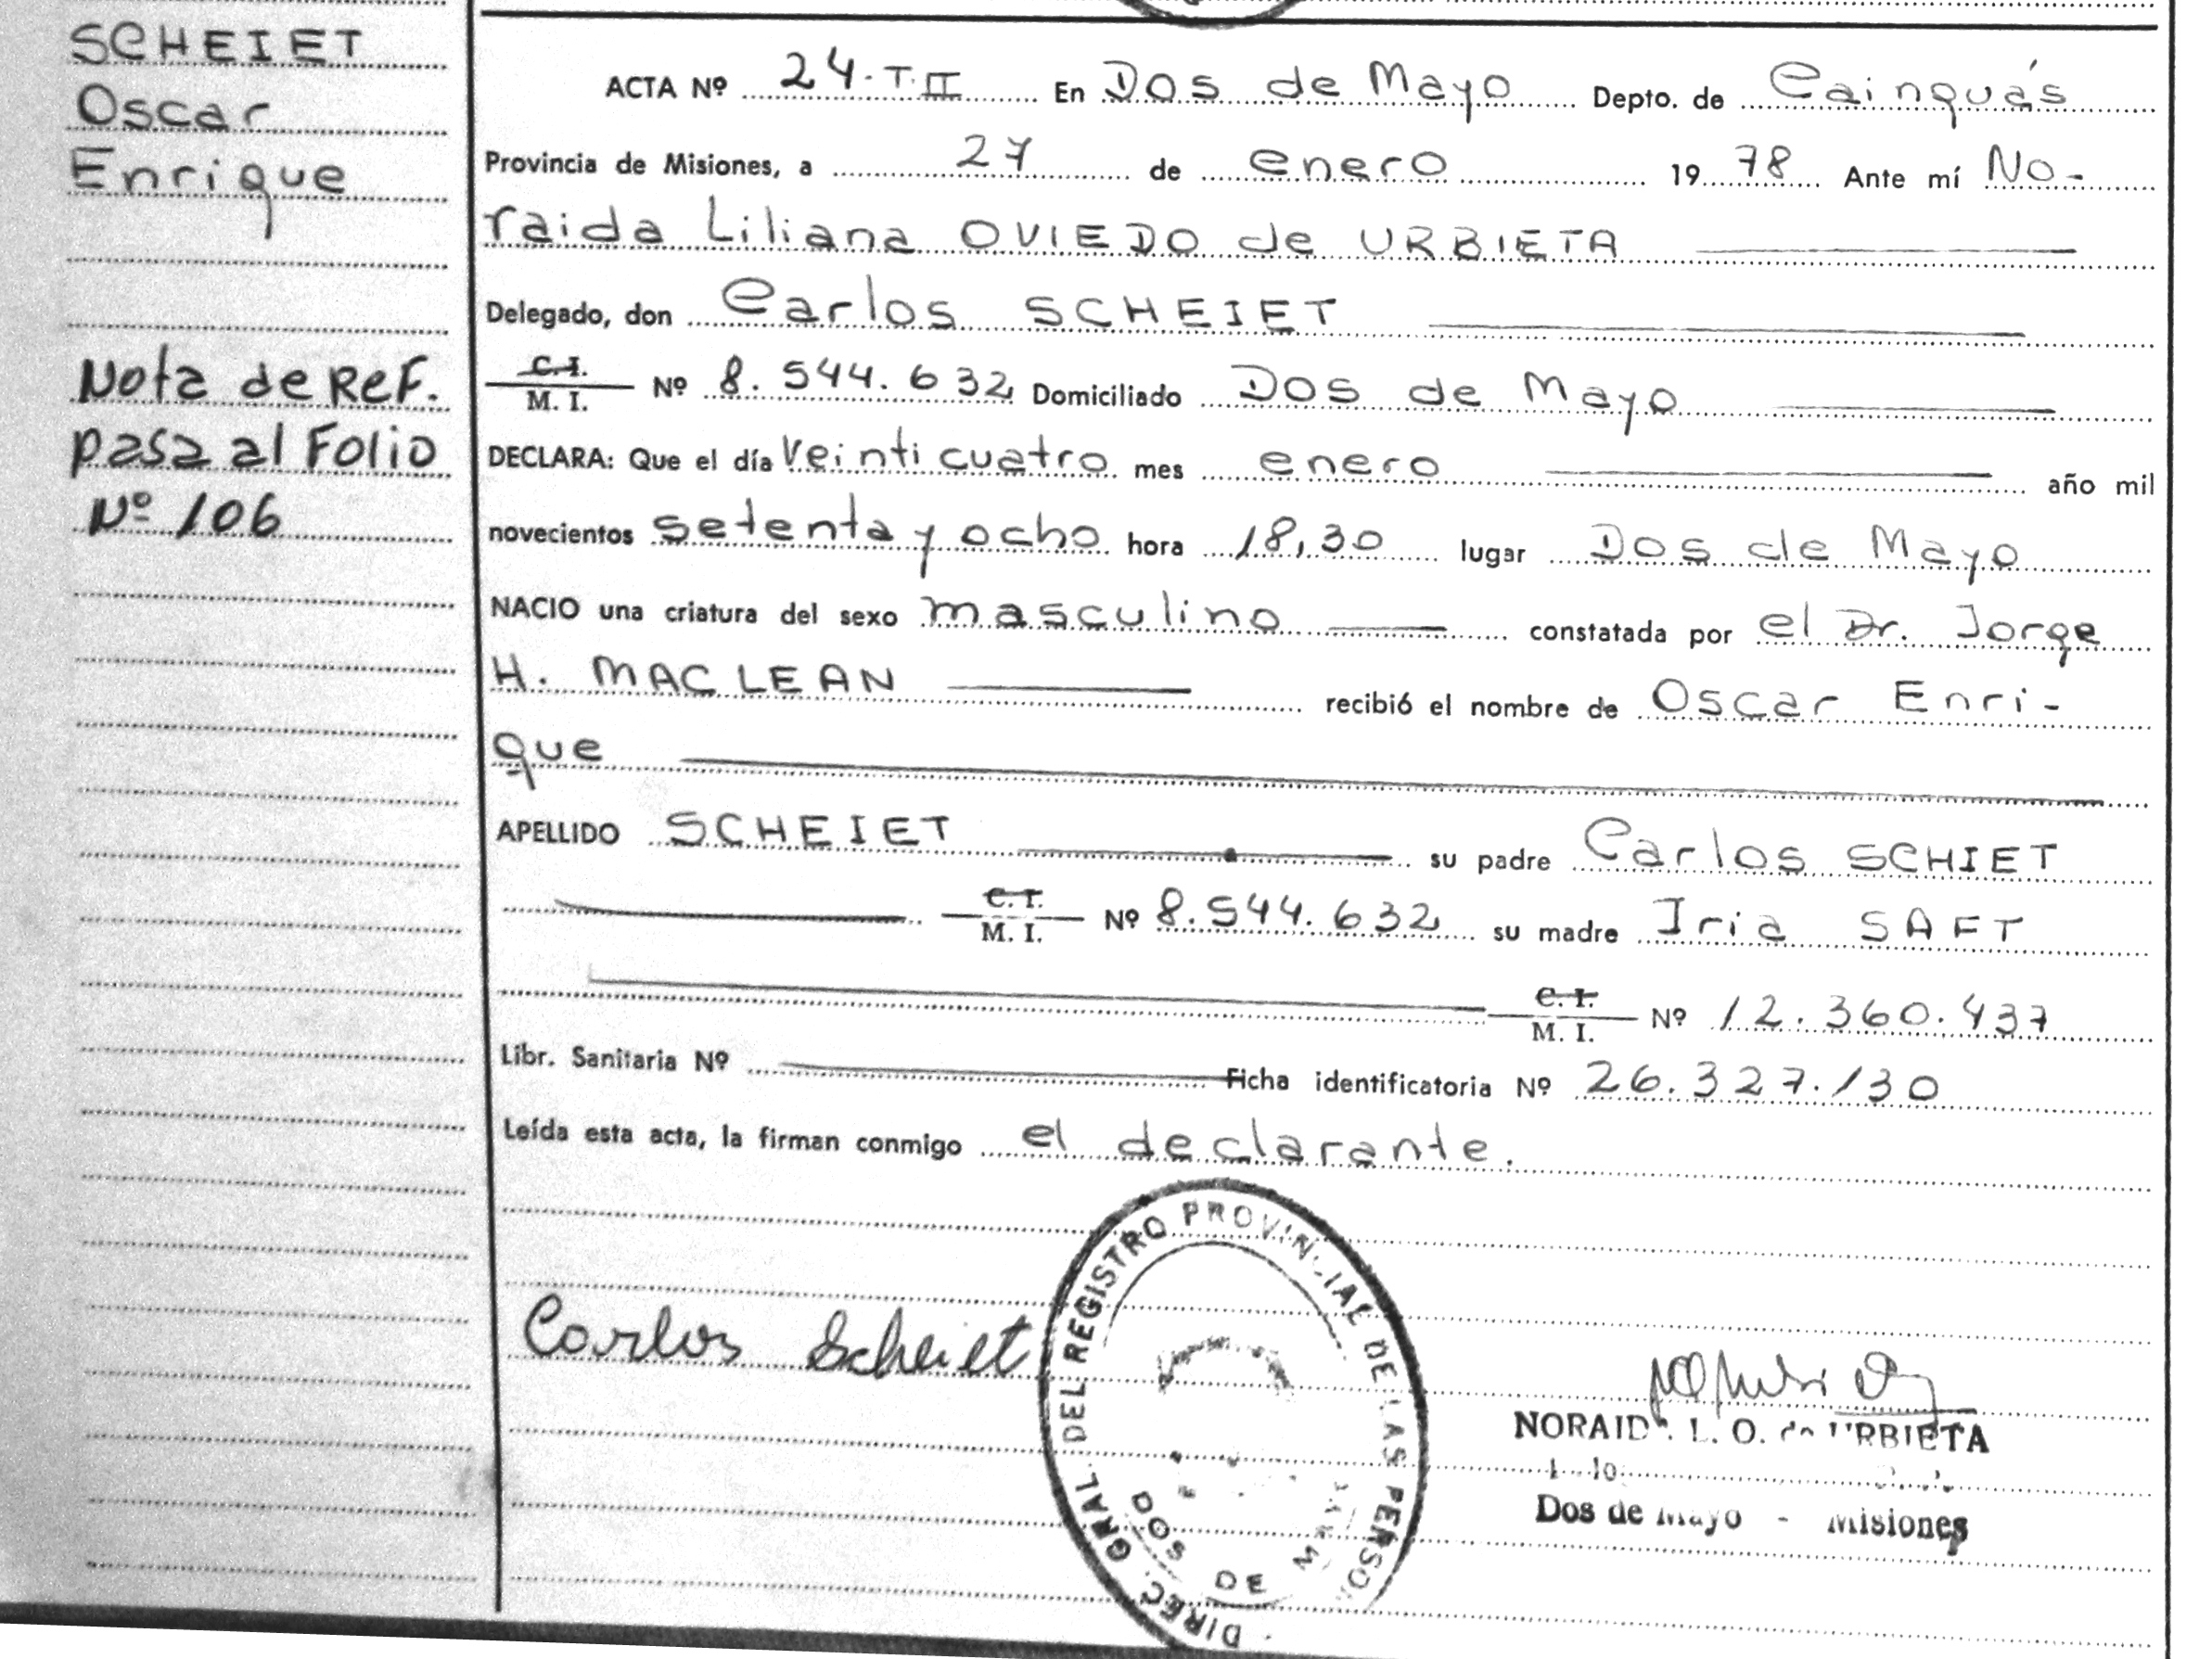 SCHEIET
Oscar
Enrique
Nota de Ref.
pasa al Folio
Nº 106
ACTA Nº 24-T.II En Dos de Mayo Depto. de Cainguás
Provincia de Misiones, a 27 de enero 1978 Ante mí No-
raida Liliana OVIEDO de URBIETA
Delegado, don Carlos SCHEIET
C.I.
M. I. Nº 8.544.632 Domiciliado Dos de Mayo
DECLARA: Que el día veinticuatro mes enero año mil
novecientos setenta y ocho hora 18,30 lugar Dos de Mayo
NACIO una criatura del sexo masculino constatada por el Dr. Jorge
H. MAC LEAN recibió el nombre de Oscar Enri-
que
APELLIDO SCHEIET su padre Carlos SCHIET
C.I.
M. I. Nº 8.544.632 su madre Iria SAFT
C.I.
M. I. Nº 12.360.437
Libr. Sanitaria Nº Ficha identificatoria Nº 26.327.130
Leída esta acta, la firman conmigo el declarante.
Carlos Scheiet
DIREC. GRAL. DEL REGISTRO PROVINCIAL DE LAS PERSO.
DOS DE MAYO
NORAIDA L. O. de URBIETA
Dos de Mayo - Misiones